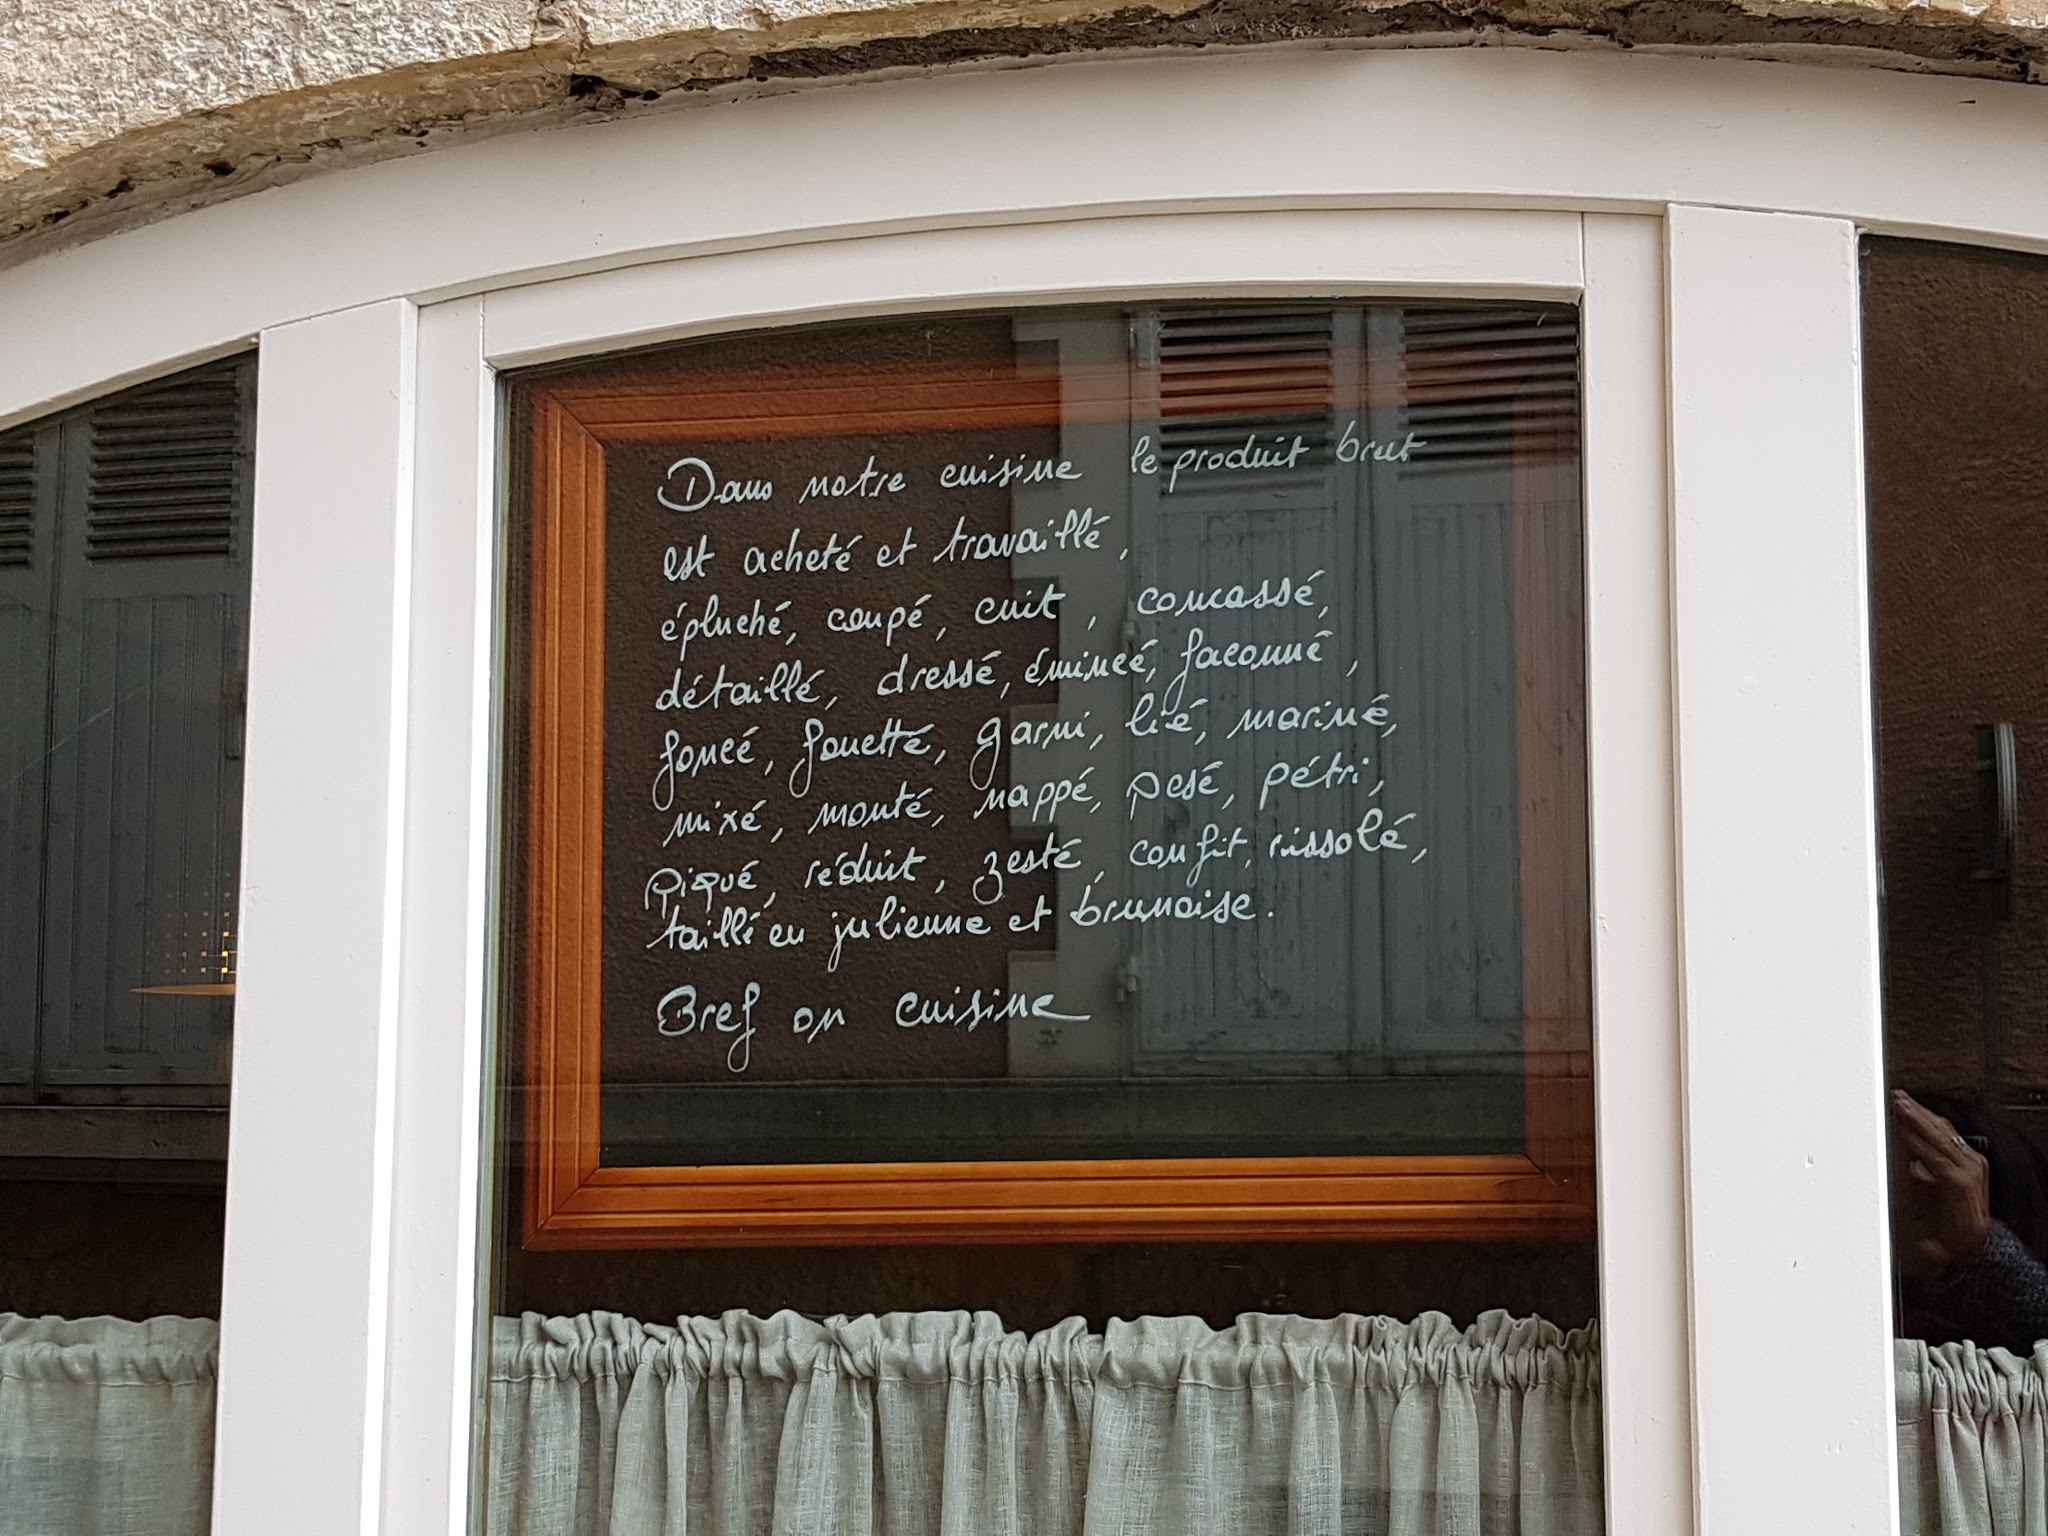 Dans notre cuisine le produit brut
est acheté et travaillé,
épluché, coupé, cuit, concassé,
détaillé, dressé, émincé, faconné,
foncé, fouetté, garni, lié, mariné,
mixé, monté, nappé, pesé, pétri,
piqué, réduit, zesté, confit, rissolé,
taillé en julienne et brunoise.
Bref on cuisine